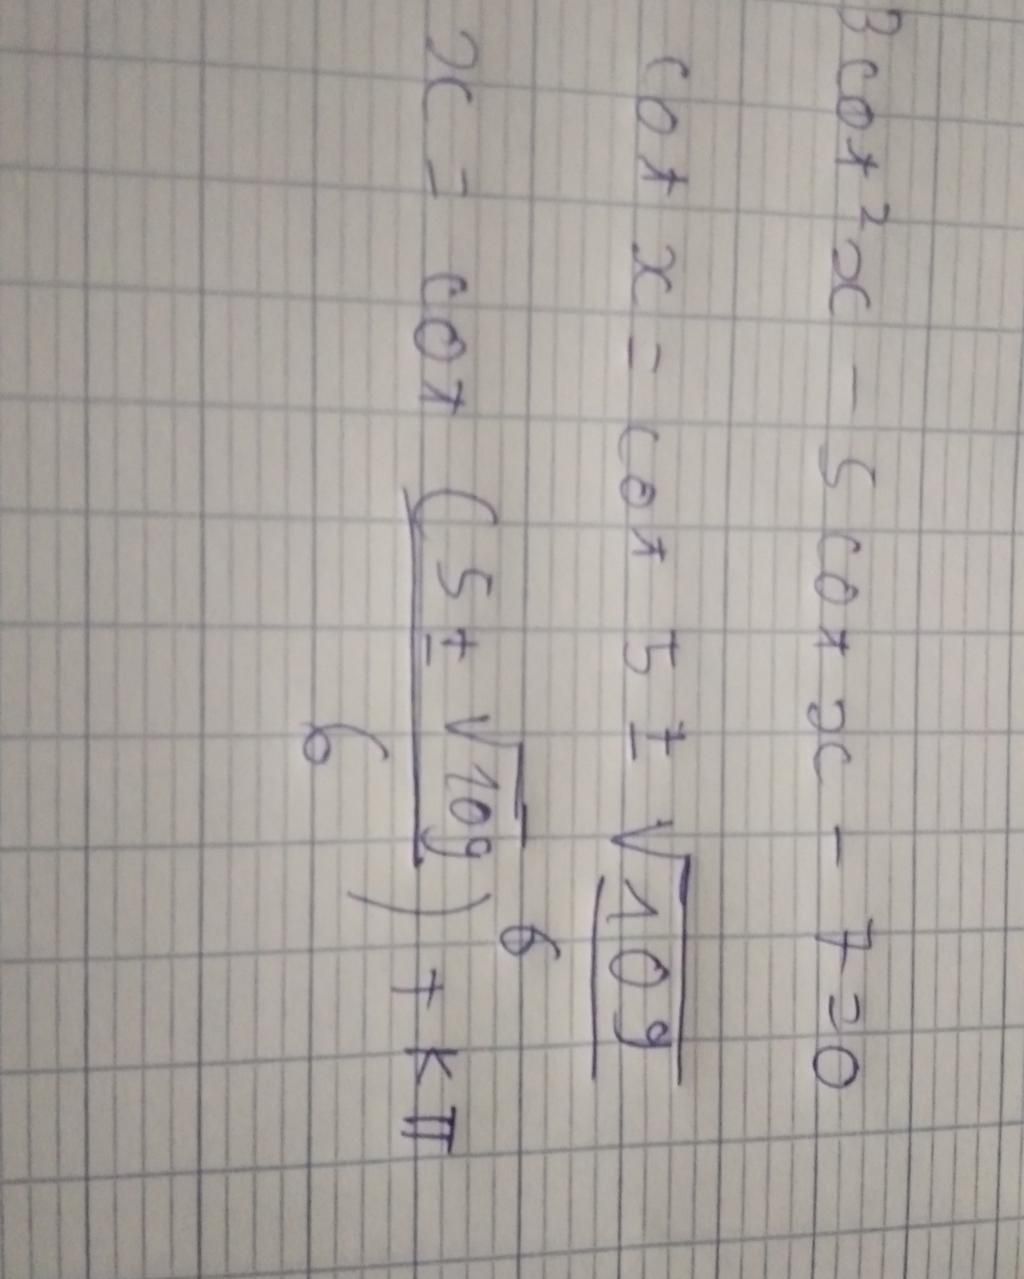 3 cot² x - 5 cot x - 7 = 0
cot x = cot 5 ± √109
6
x = cot (5 ± √109) + kπ
6